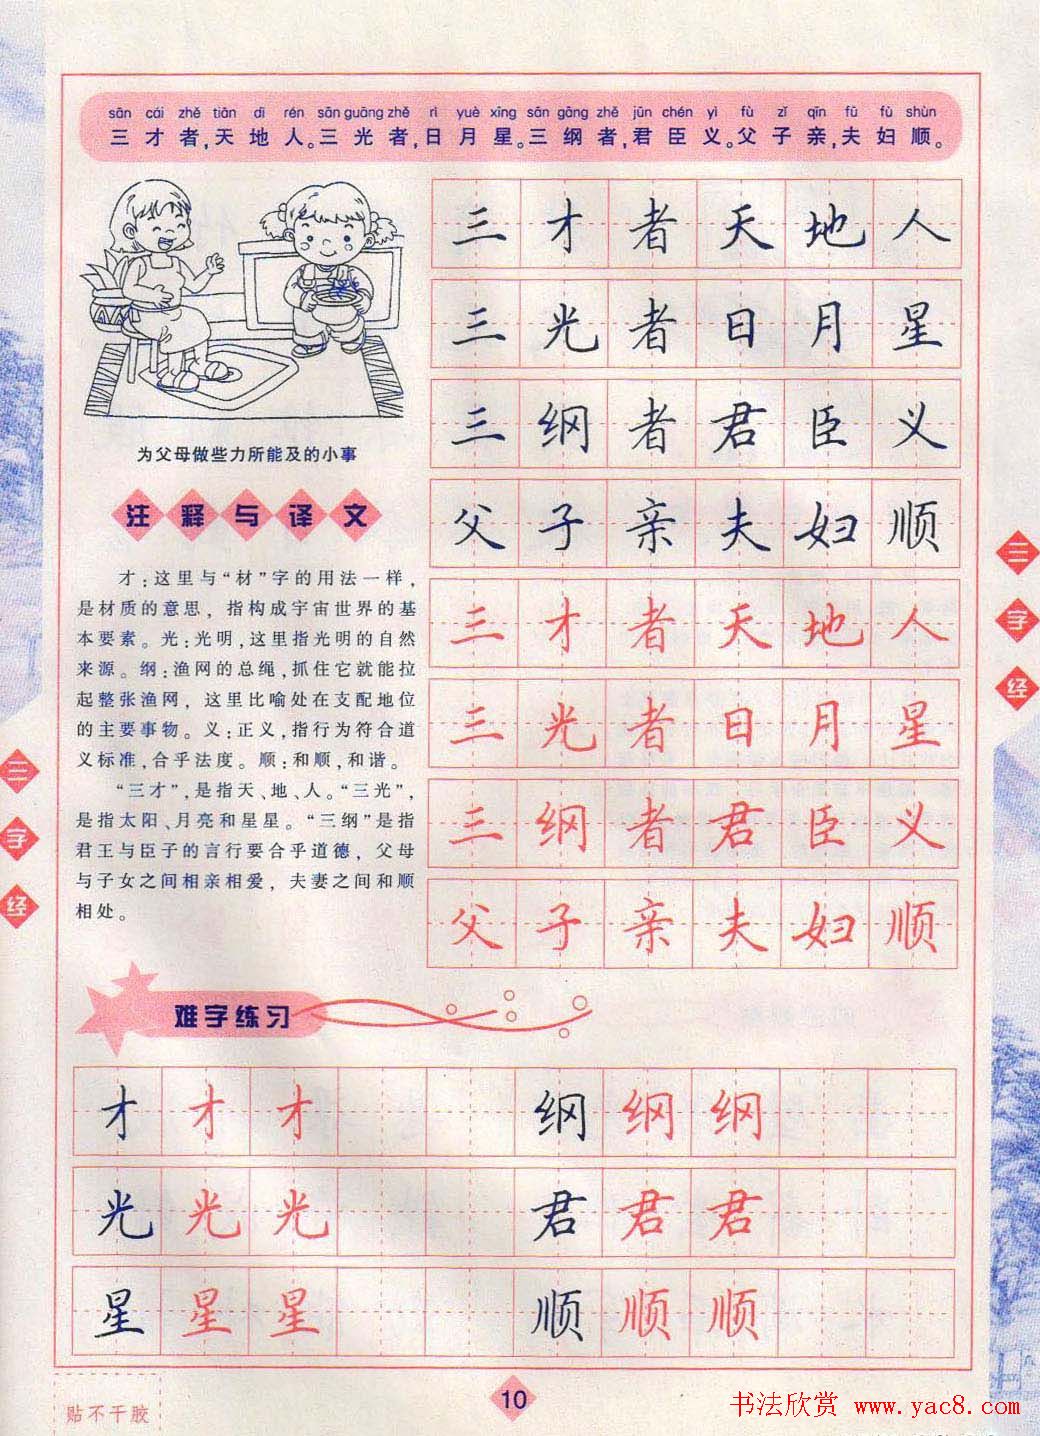 sān cái zhě tiān dì rén sān guāng zhě rì yuè xīng sān gāng zhě jūn chén yì fù zǐ qīn fū fù shùn
三才者,天地人。三光者,日月星。三纲者,君臣义。父子亲,夫妇顺。
三才者天地人
三光者日月星
三纲者君臣义
父子亲夫妇顺
三才者天地人
三光者日月星
三纲者君臣义
父子亲夫妇顺
为父母做些力所能及的小事
注释与译文
才:这里与“材”字的用法一样,
是材质的意思，指构成宇宙世界的基
本要素。光:光明,这里指光明的自然
来源。纲:渔网的总绳,抓住它就能拉
起整张渔网，这里比喻处在支配地位
的主要事物。义:正义,指行为符合道
义标准,合乎法度。顺:和顺,和谐。
“三才”,是指天、地、人。“三光”,
是指太阳、月亮和星星。“三纲”是指
君王与臣子的言行要合乎道德，父母
与子女之间相亲相爱，夫妻之间和顺
相处。
三字经
三字经
难字练习
才才才 纲纲纲
光光光 君君君
星星星 顺顺顺
贴不干胶
10
书法欣赏 www.yac8.com